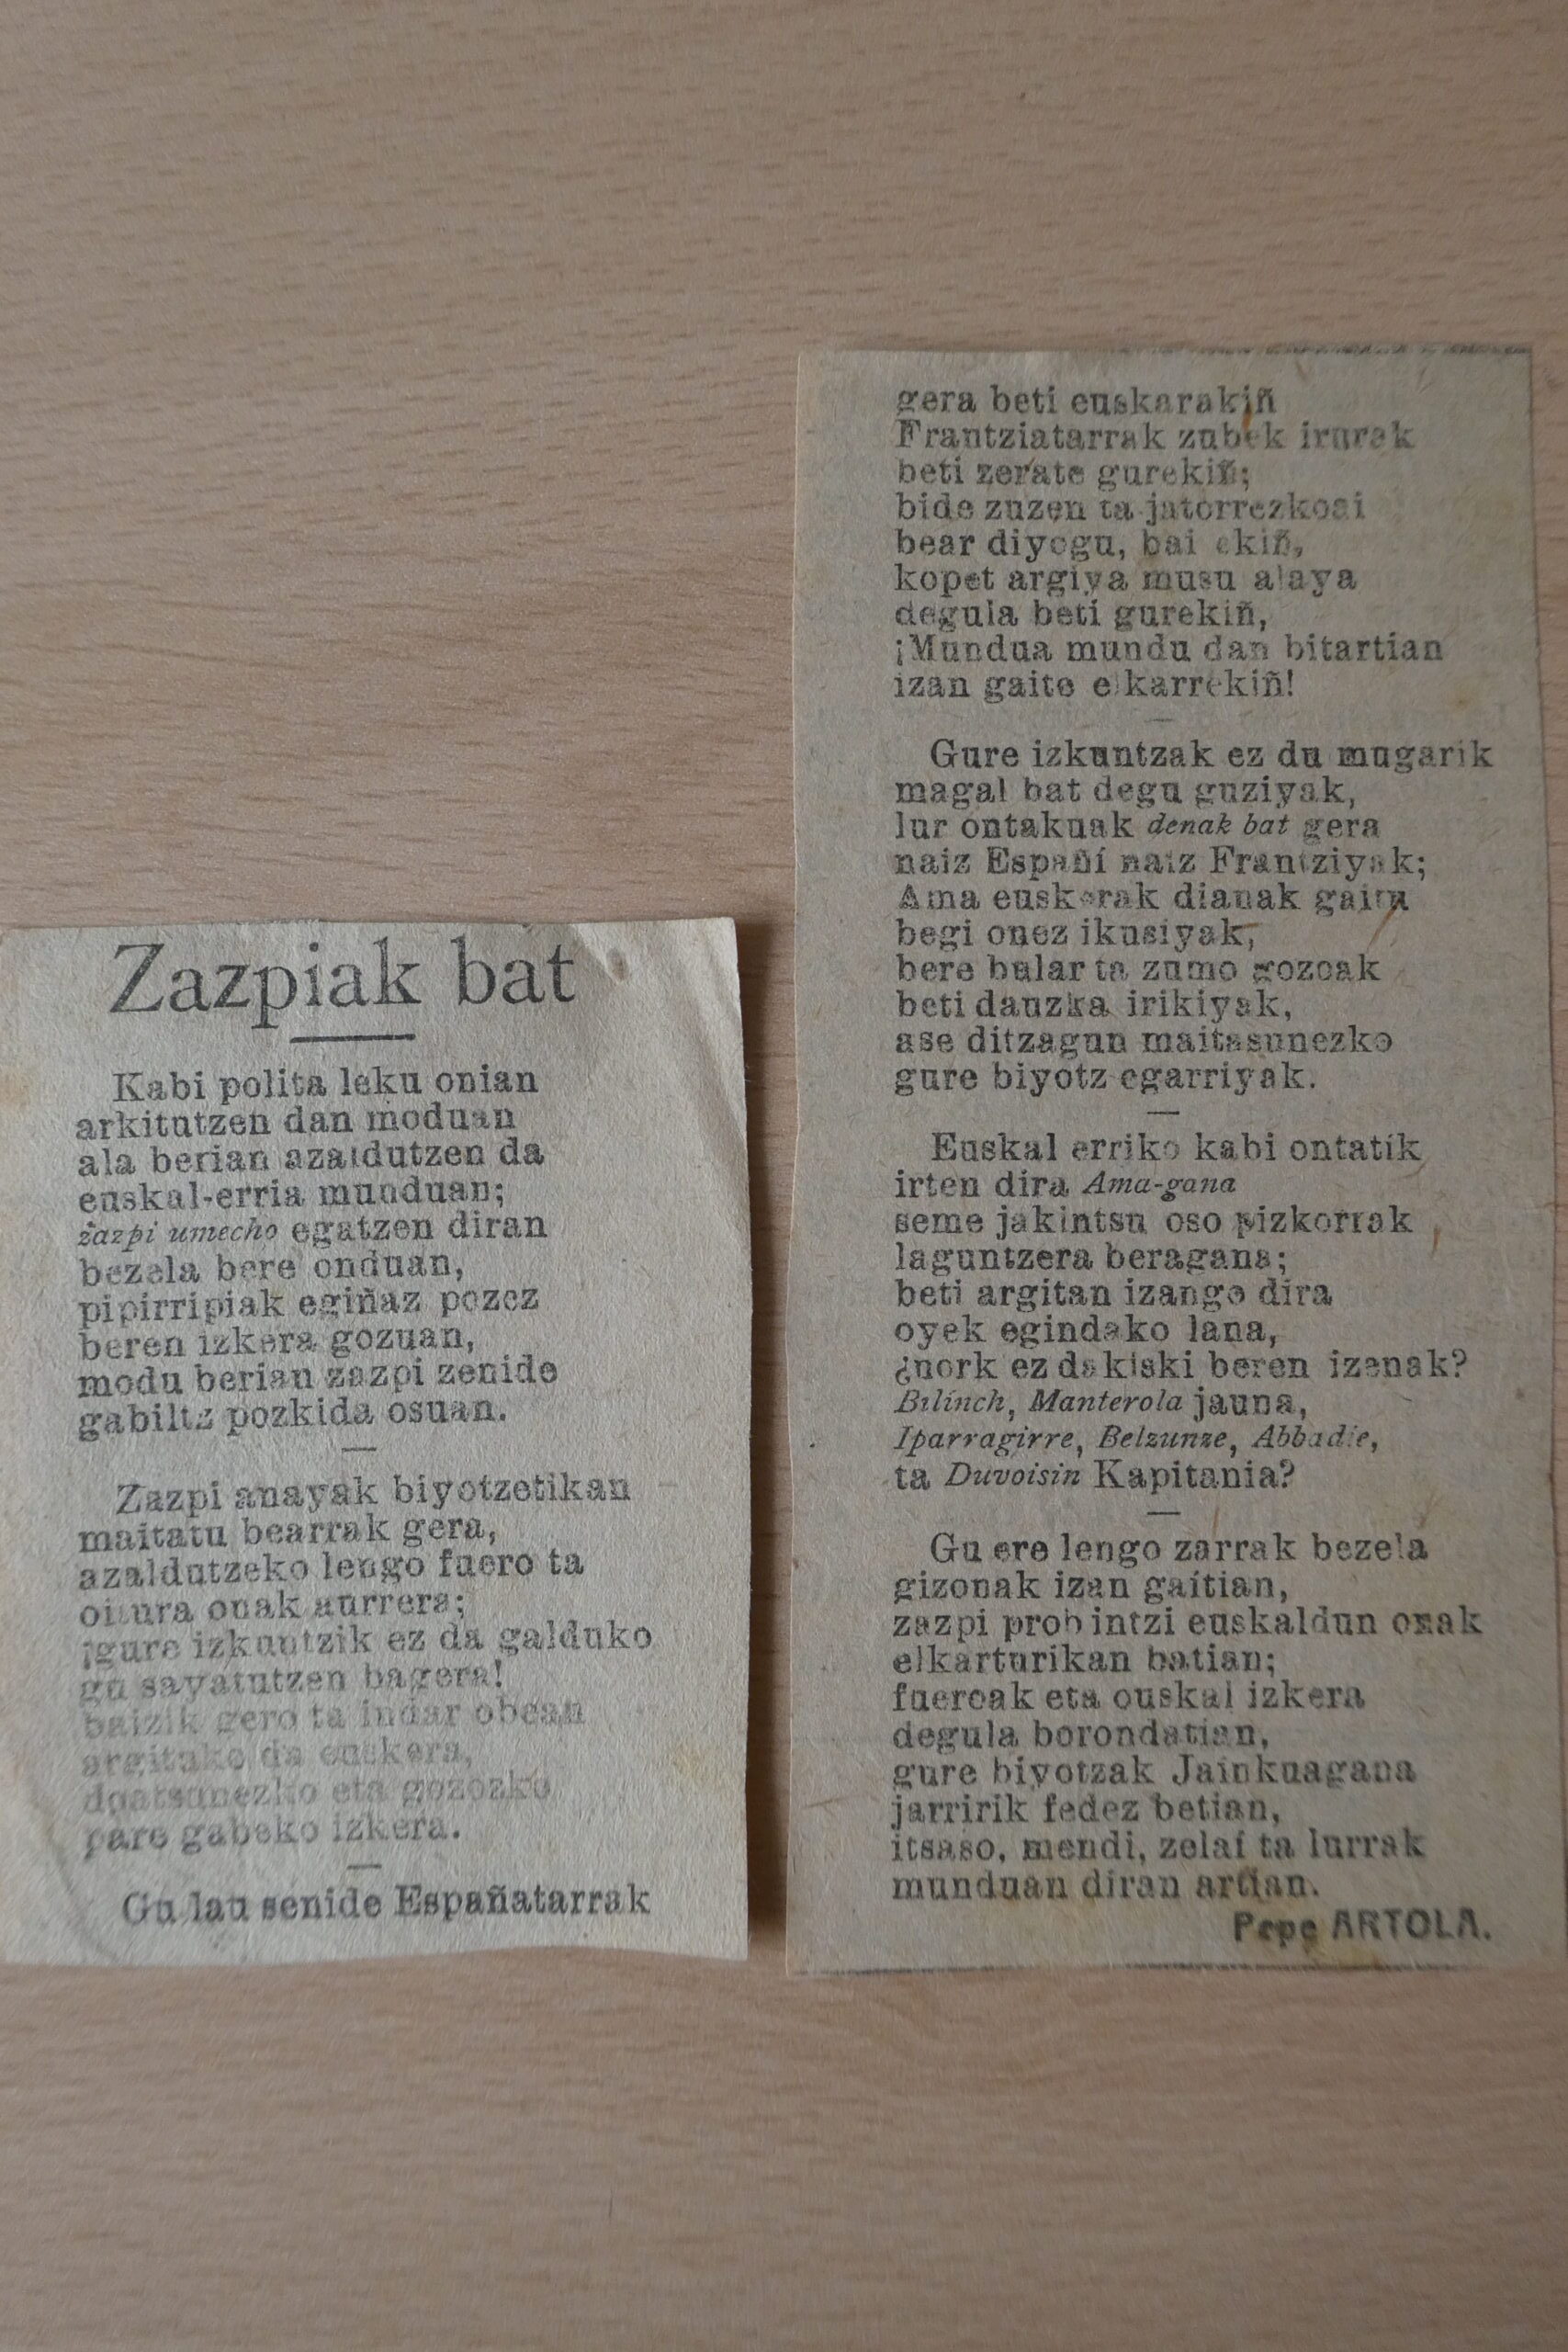 Zazpiak bat
Kabi polita leku onian
arkitutzen dan moduan
ala berian azaldutzen da
euskal-erria munduan;
zazpi umecho egatzen diran
bezela bere onduan,
pipirripiak egiñaz pozez
beren izkera gozuan,
modu berian zazpi zenide
gabiltz pozkida osuan.
Zazpi anayak biyotzetikan
maitatu bearrak gera,
azaldutzeko lengo fuero ta
oitura onak aurrera;
¡gure izkuntzik ez da galduko
gu sayatutzen bagera!
baizik gero ta indar obean
argituko da euskera,
doatsunezko eta gozozko
pare gabeko izkera.
Gu lau senide Españatarrak
gera beti euskarakiñ
Frantziatarrak zubek irurak
beti zerate gurekiñ;
bide zuzen ta jatorrezkoai
bear diyogu, bai ekiñ,
kopet argiya musu alaya
degula beti gurekiñ,
¡Mundua mundu dan bitartian
izan gaite elkarrekiñ!
Gure izkuntzak ez du mugarik
magal bat degu guziyak,
lur ontakuak denak bat gera
naiz Españi naiz Frantziyak;
Ama euskerak dianak gaitu
begi onez ikusiyak,
bere bular ta zumo gozoak
beti dauzka irikiyak,
ase ditzagun maitasunezko
gure biyotz egarriyak.
Euskal erriko kabi ontatik
irten dira Ama-gana
seme jakintsu oso pizkorrak
laguntzera beragana;
beti argitan izango dira
oyek egindako lana,
¿nork ez dakizki beren izenak?
Bilinch, Manterola jauna,
Iparragirre, Belzunze, Abbadie,
ta Duvoisin Kapitania?
Gu ere lengo zarrak bezela
gizonak izan gaitian,
zazpi probintzi euskaldun onak
elkarturikan batian;
fueroak eta ouskal izkera
degula borondatian,
gure biyotzak Jainkuagana
jarririk fedez betian,
itsaso, mendi, zelai ta lurrak
munduan diran artian.
Pepe ARTOLA.